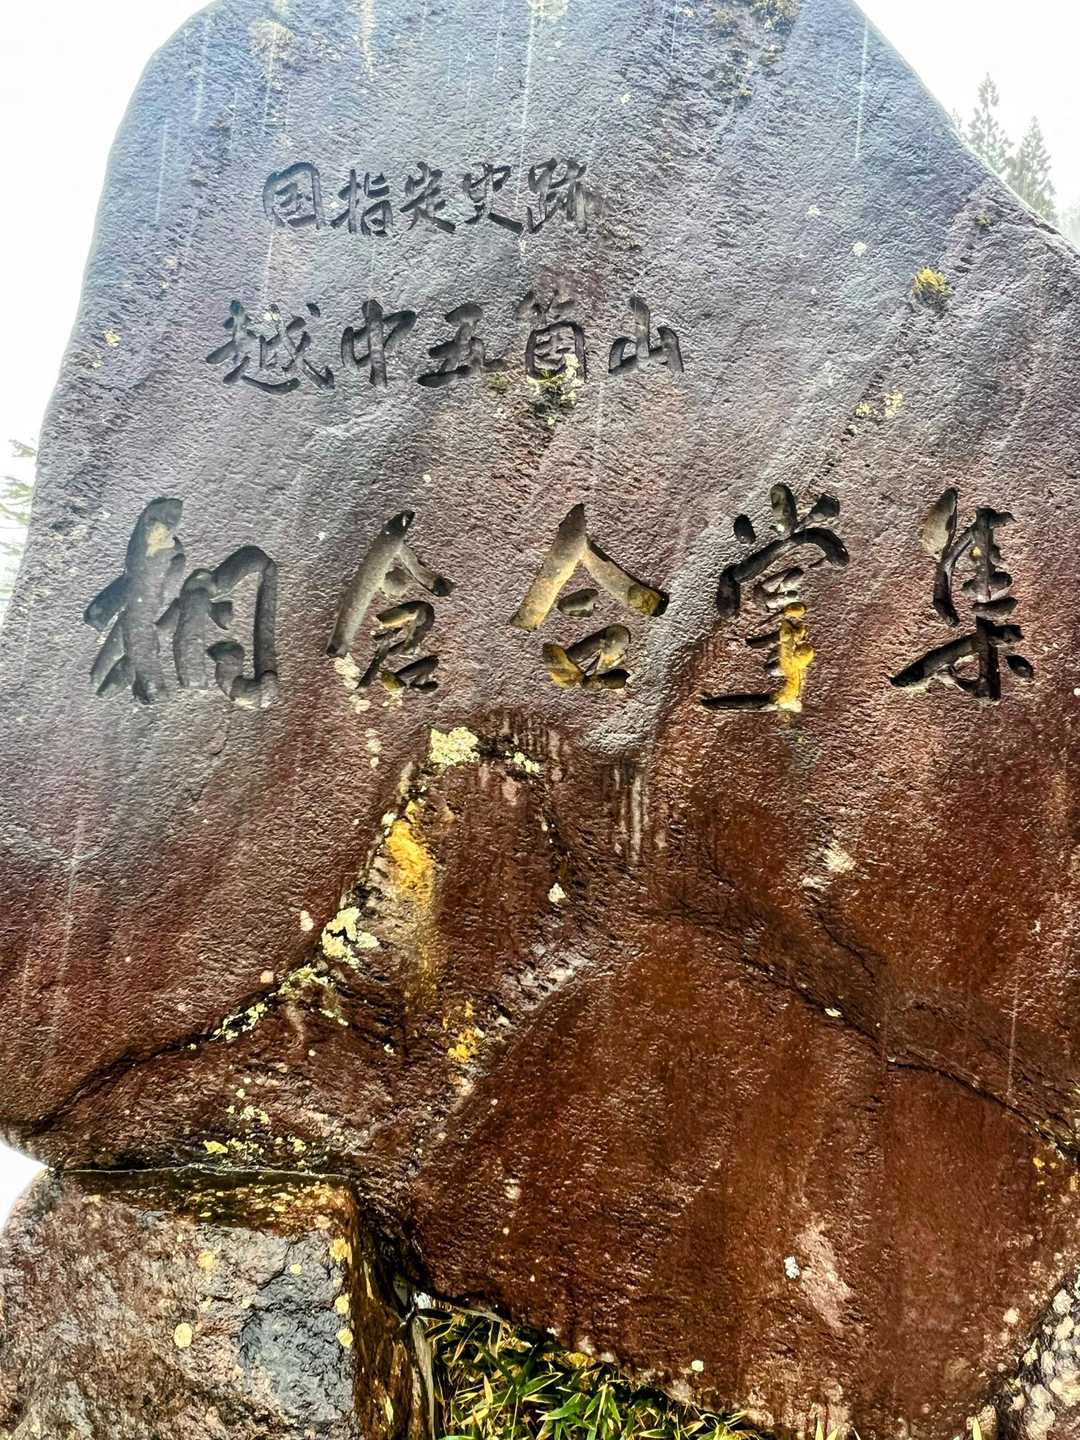 国指定史跡
越中五箇山
相倉合掌集